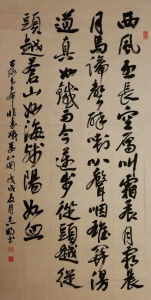 西風烈長空雁叫霜晨月霜晨
月馬蹄聲碎喇叭聲咽雄關漫
道真如鐵而今邁步從頭越從
頭越蒼山如海殘陽如血
毛主席憶秦娥婁山關戊戌夏月